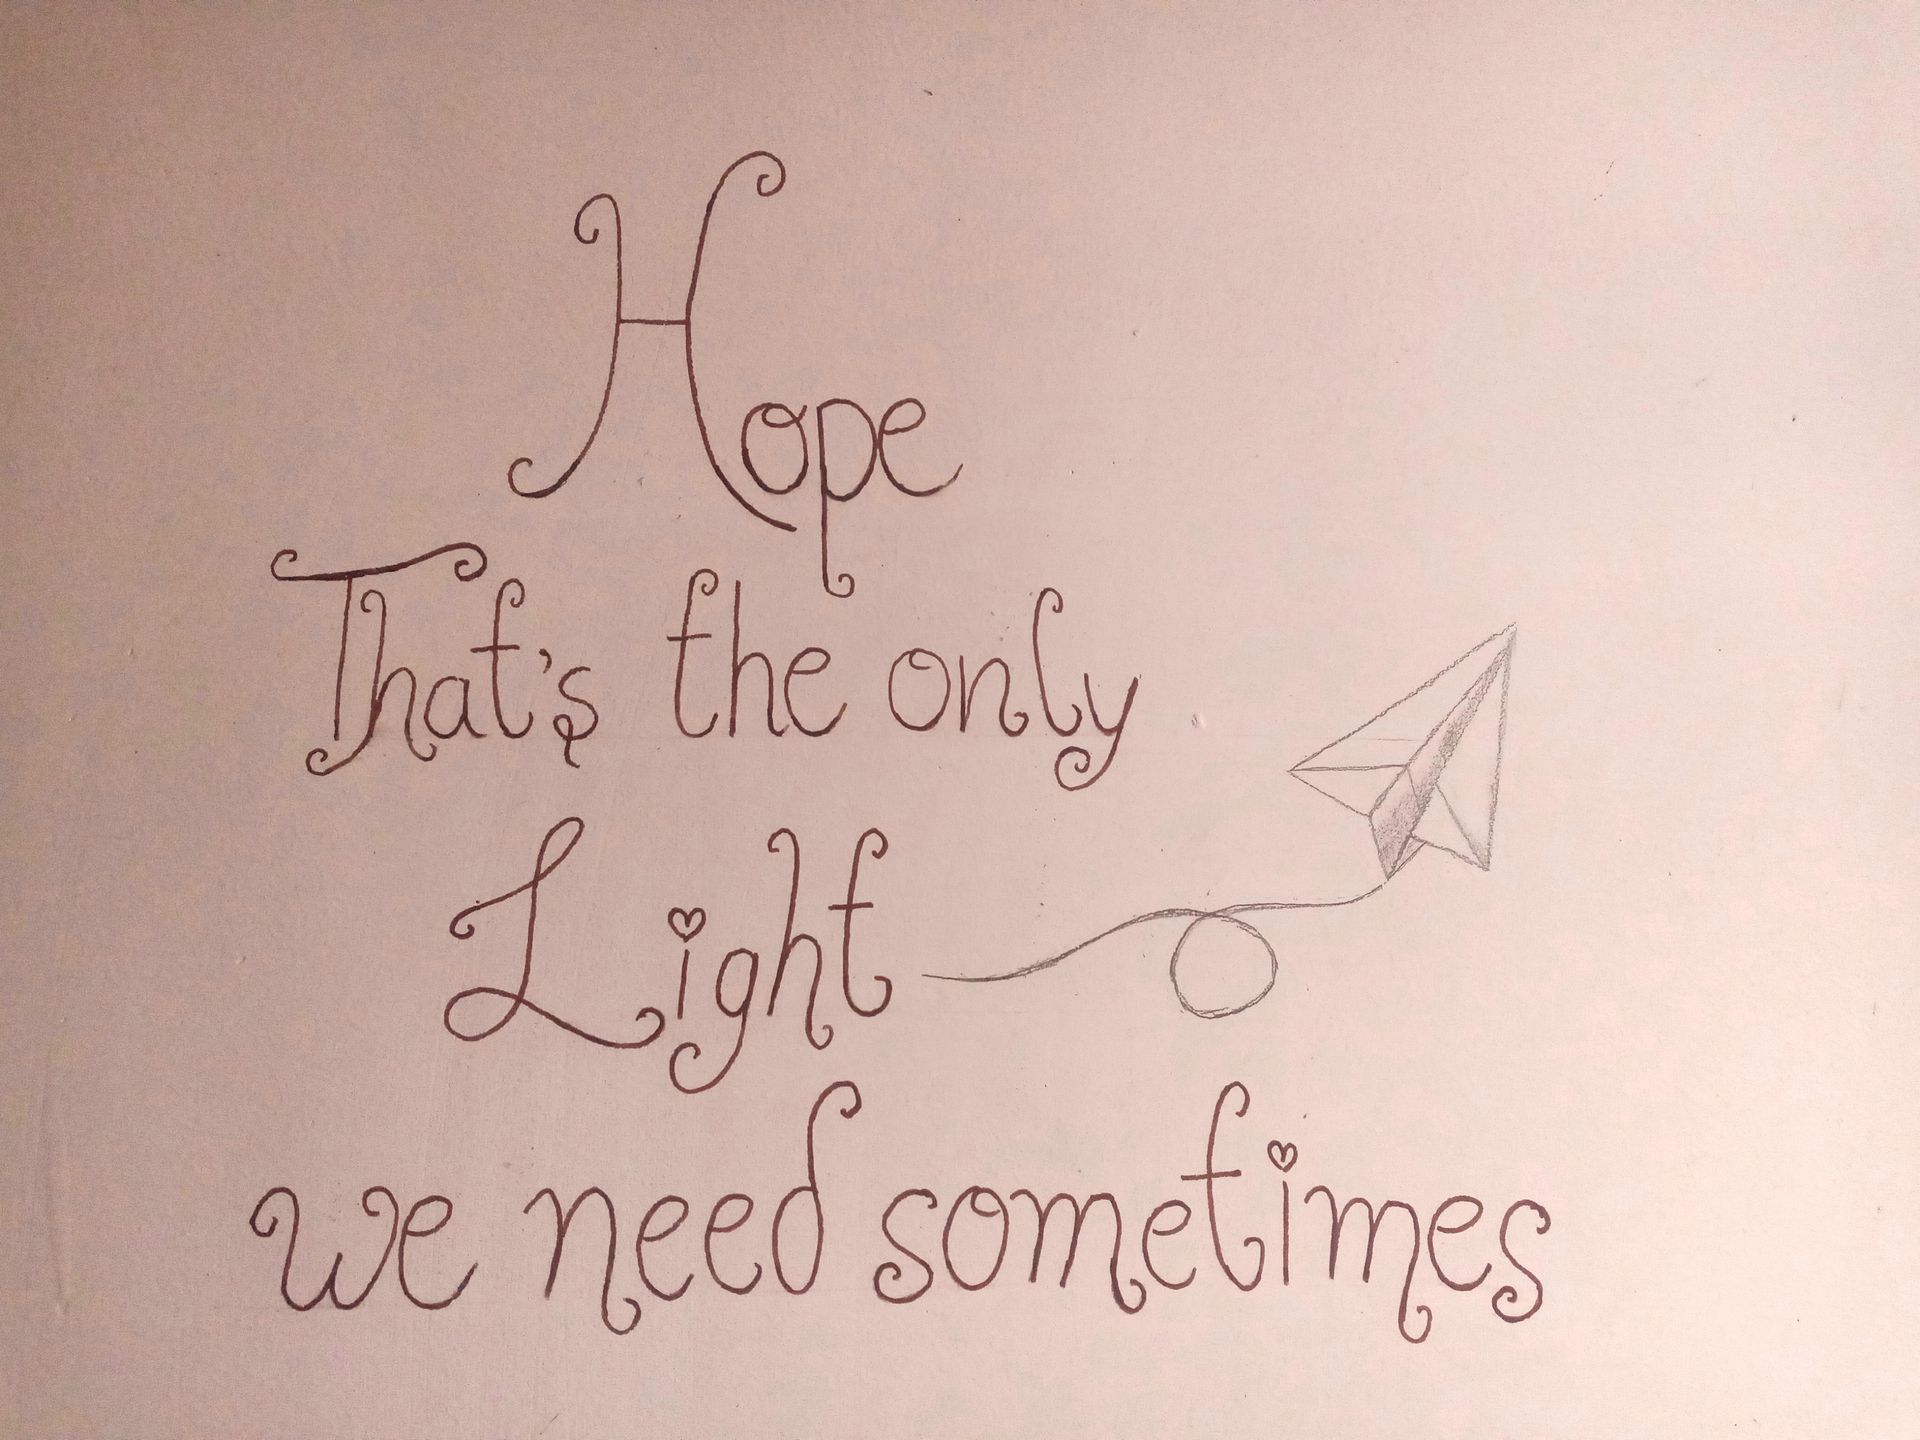 Hope
That's the only
Light
we need sometimes